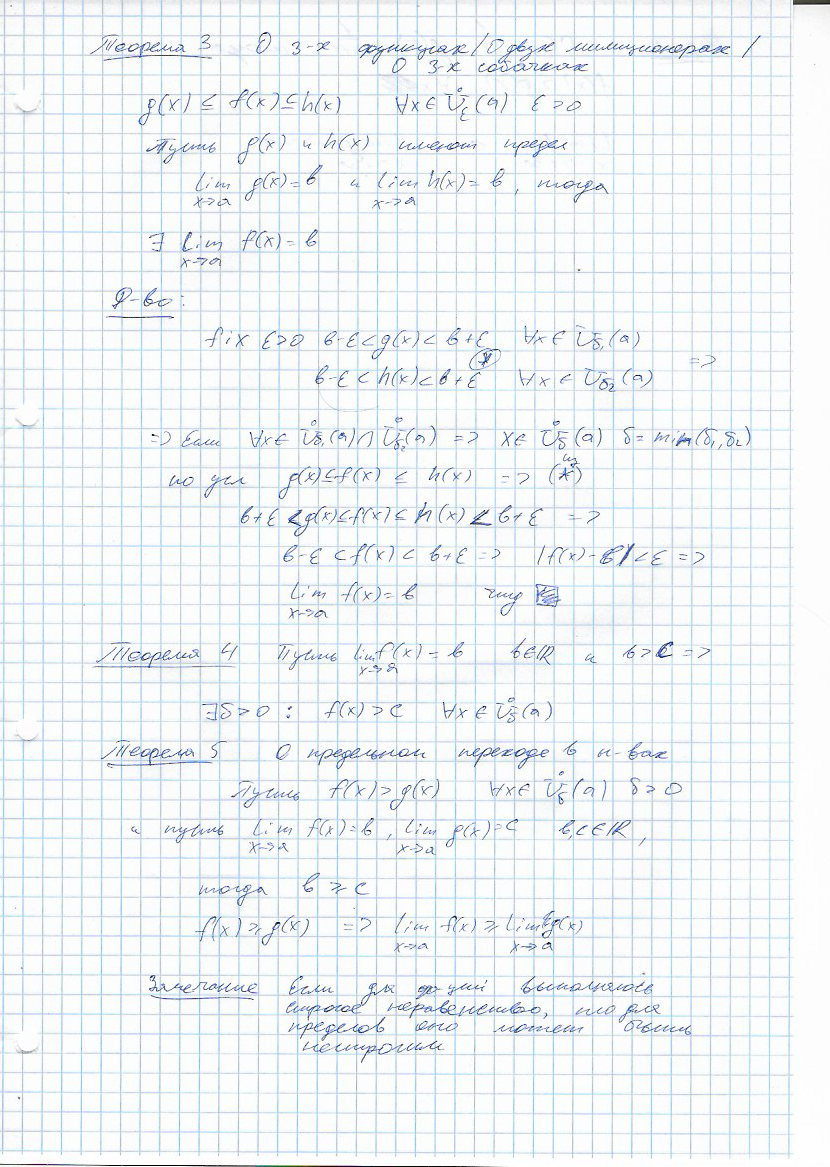 Теорема 3 О 3-х функциях / О двух милиционерах /
О 3-х собачках
g(x) ≤ f(x) ≤ h(x) ∀x∈ Ů_ε(a) ε>0
Пусть g(x) и h(x) имеют предел
lim_{x→a} g(x)=b и lim_{x→a} h(x)=b, тогда
∃ lim_{x→a} f(x)=b
Д-во:
fix ε>0 b-ε<g(x)<b+ε ∀x∈ Ů_{δ₁}(a)
b-ε<h(x)<b+ε (*) ∀x∈ Ů_{δ₂}(a) =>
=> Если ∀x∈ Ů_{δ₁}(a)∩Ů_{δ₂}(a) => x∈ Ů_δ(a) δ=min(δ₁,δ₂)
по усл g(x)≤f(x) ≤ h(x) => из (*)
b+ε<g(x)≤f(x)≤h(x)<b+ε =>
b-ε<f(x)<b+ε => |f(x)-b|<ε =>
lim_{x→a} f(x)=b чтд
Теорема 4 Пусть lim_{x→a} f(x)=b b∈ℝ и b>c =>
∃δ>0 : f(x)>c ∀x∈ Ů_δ(a)
Теорема 5 О предельном переходе в н-вах
Пусть f(x)>g(x) ∀x∈ Ů_δ(a) δ>0
и пусть lim_{x→a} f(x)=b, lim_{x→a} g(x)=c b,c∈ℝ,
тогда b≥c
f(x)≥g(x) => lim_{x→a} f(x)≥lim_{x→a} g(x)
Замечание Если для ф-ций выполнялось
строгое неравенство, то для
пределов оно может быть
нестрогим